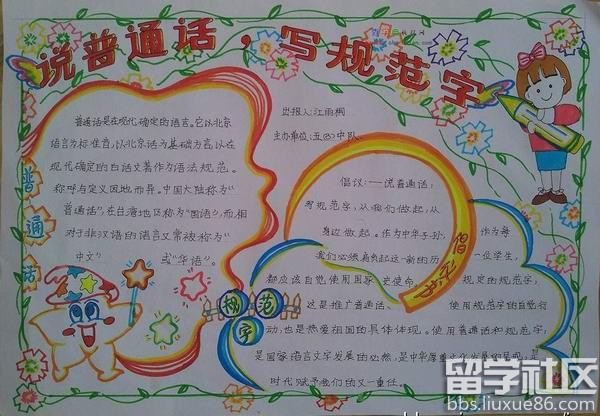 说普通话,写规范字
普通话是在现代确定的语言。它以北京
语言为标准音,以北京话为基础方言,以在
现代确定的白话文著作为语法规范。
称呼与定义因地而异。中国大陆称为“
普通话”,在台湾地区称为“国语”,而相
对于非汉语的语言又常被称为“
中文” 或“华语”。
普通话
出报人:江雨桐
主办单位:五(2)中队
倡议:——说普通话,
写规范字,从我们做起,从
身边做起。作为中华子孙, 作为每
我们必须肩负起这一新的历 一位学生,
都应该自觉使用国家 史使命, 规定的规范字,
这是推广普通话、 使用规范字的自觉行
动,也是热爱祖国的具体体现。使用普通话和规范字,
是国家语言文字发展的必然,是中华
时代赋予我们的又一重任。
规范
字
留学社区
bbs.liuxue86.com